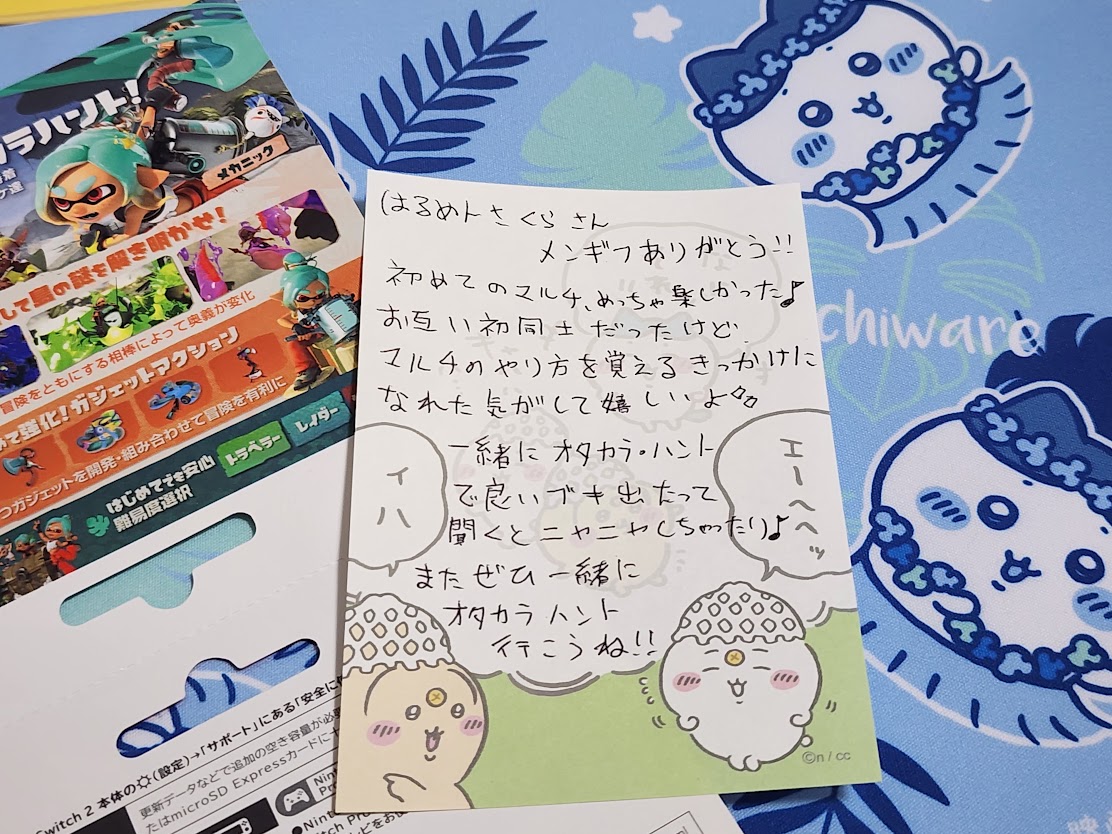 はるめんさくらさん
メンギフありがとう!!
初めてのマルチ、めっちゃ楽しかった♪
お互い初同士だったけど、
マルチのやり方を覚えるきっかけに
なれた気がして嬉しいよ
一緒にオタカラ・ハント
で良いブキ出たって
聞くとニヤニヤしちゃったり♪
またぜひ一緒に
オタカラハント
行こうね!!
エーヘヘッ
イハ
©n / cc
chiware
ラハント!
メカニック
して島の謎を解き明かせ!
冒険をともにする相棒によって奥義が変化
めて強化!ガジェットアクション
つガジェットを開発・組み合わせて冒険を有利に
はじめてでも安心
難易度選択
トラベラー
レイダー
Switch 2 本体の(設定)→「サポート」にある「安全に
更新データなどで追加の空き容量が必
たはmicroSD Expressカードに